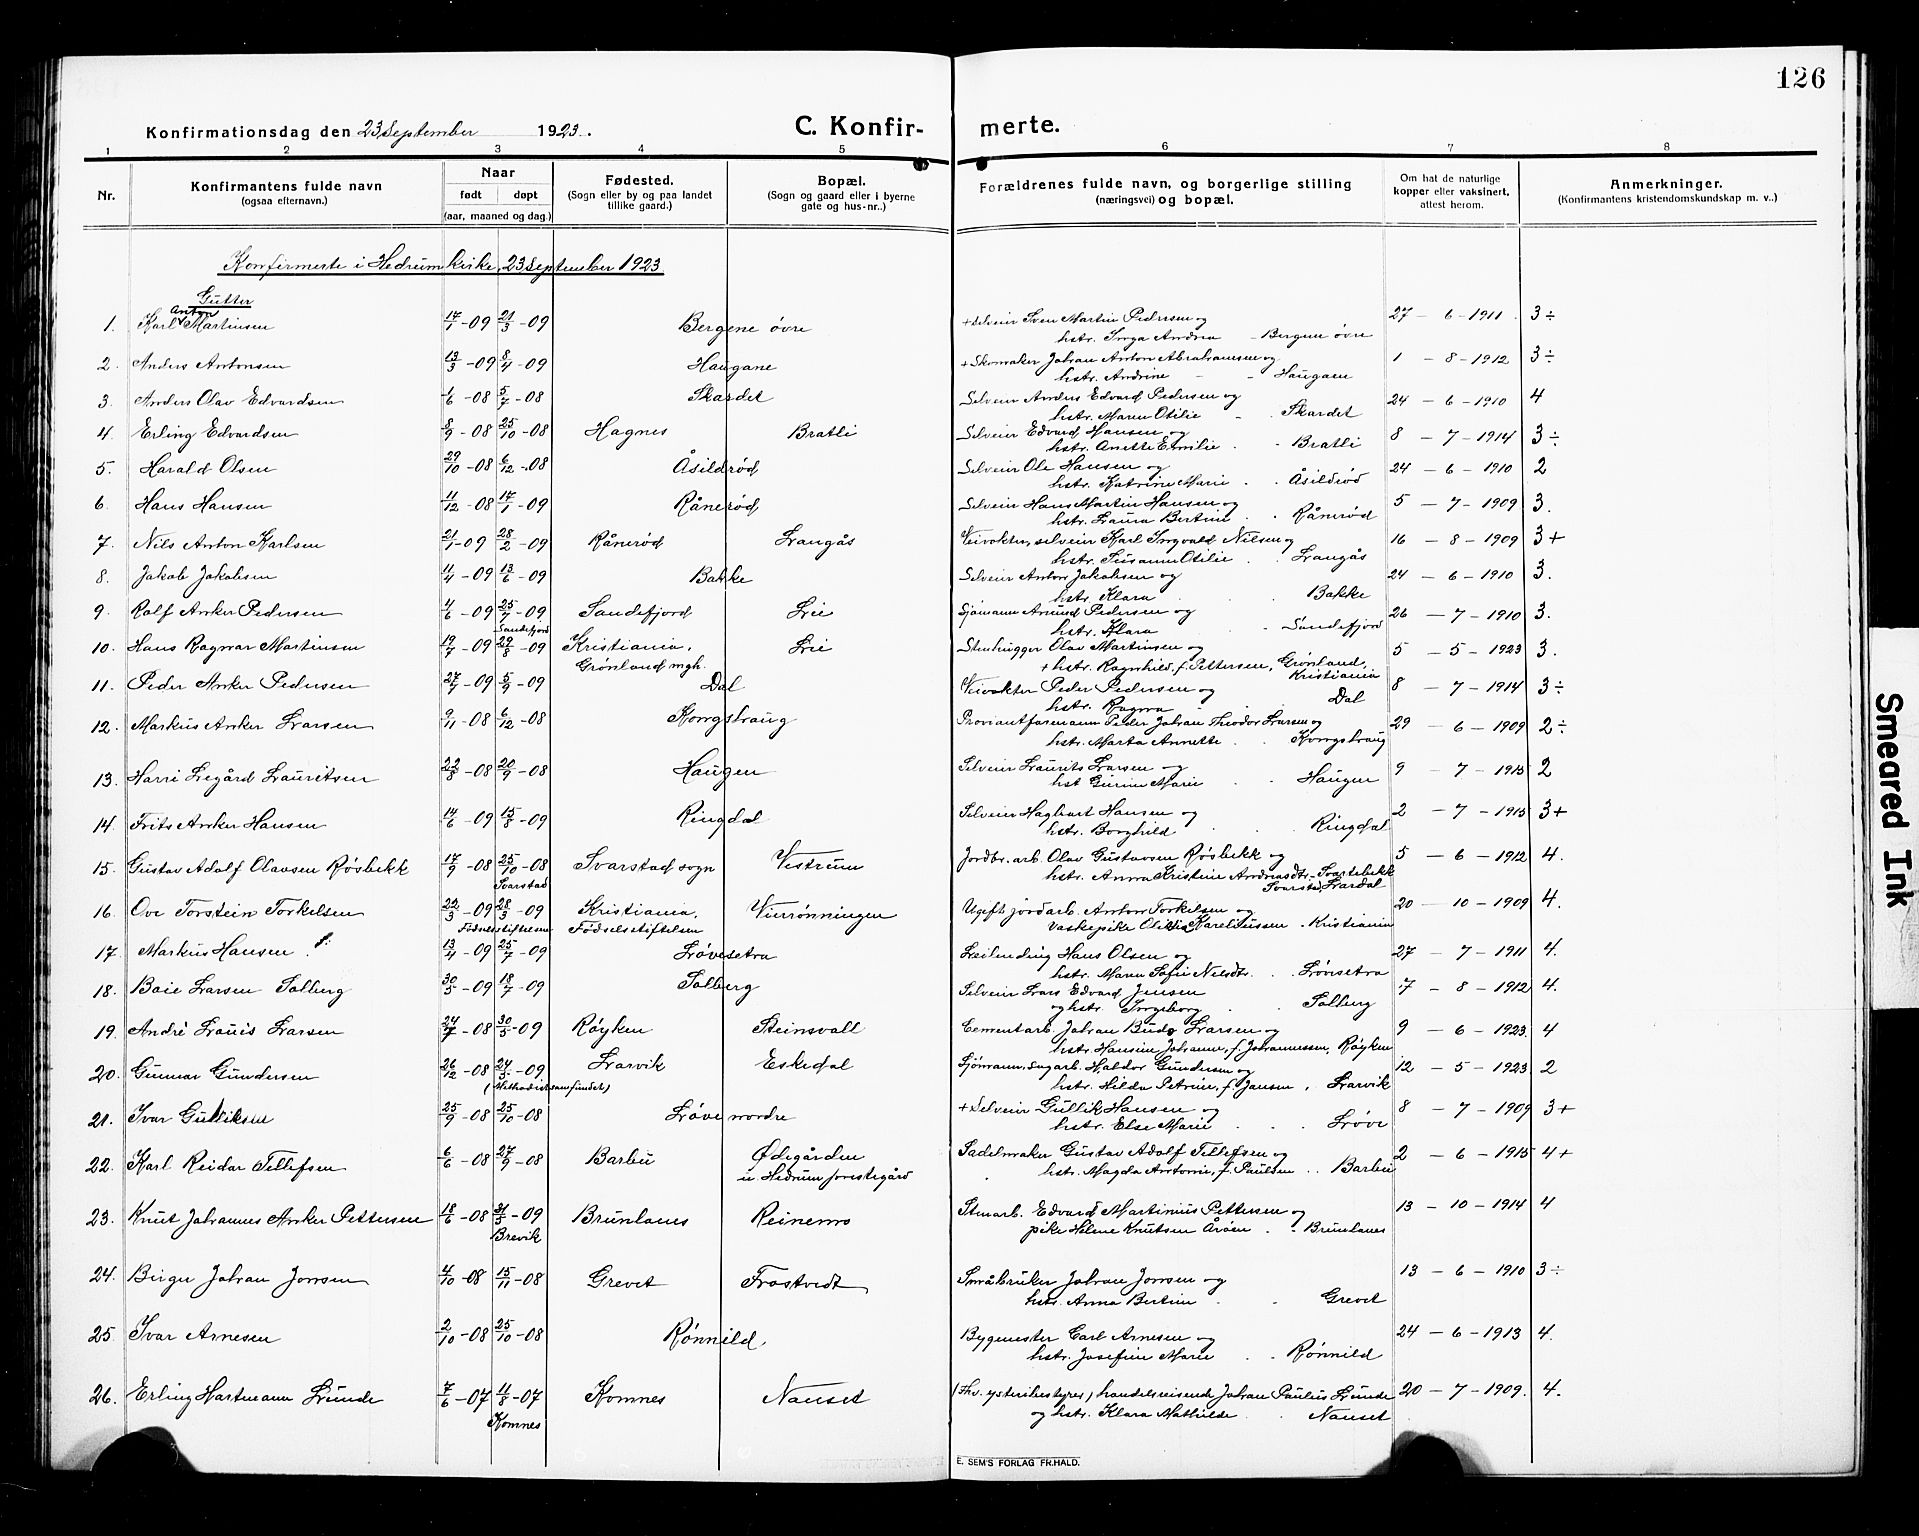 126
Konfirmationsdag den 23 September 1923.
C. Konfirmerte.
1 2 3 4 5 6 7 8
Nr. Konfirmantens fulde navn (ogsaa efternavn.) Naar født døpt (aar, maaned og dag.) Fødested. (Sogn eller by og paa landet tillike gaard.) Bopæl. (Sogn og gaard eller i byerne gate og hus-nr..) Forældrenes fulde navn, og borgerlige stilling (næringsvei) og bopæl. Om hat de naturlige kopper eller vaksinert, attest herom. Anmerkninger. (Konfirmantens kristendomskundskap m. v..)
Konfirmerte i Hedrum kirke, 23 September 1923
Gutter
1. Karl Anton Martinsen 17/1-09 21/3-09 Bergene øvre + Selveier Sven Martin Pedersen og 27-6-1911. 3÷
hstr. Inga Andrea - Bergene øvre
2. Anders Antonsen 13/3-09 8/4-09 Haugane + Skomaker Johan Anton Abrahamsen og 1-8-1912 3÷
hstr. Andrine - - Haugaen
3. Anders Olav Edvardsen 1/6-08 5/7-08 Skardet Selveier Anders Edvard Pedersen og 24-6-1910 4
hstr. Maren Otilie - . Skardet
4. Erling Edvardsen 8/9-08 25/10-08 Hagnes Bratli Selveier Edvard Hansen og 8-7-1914 3÷
hstr. Anette Emilie . - Bratli
5. Harald Olsen 29/10-08 6/12-08 Åsildrød Selveier Ole Hansen og 24-6-1910 2
hstr. Katrine Marie . . Åsildrød
6. Hans Hansen 11/12-08 17/1-09 Rånerød Selveier Hans Martin Hansen og 5-7-1909 3.
hstr. Laura Bertine . . Rånerød
7. Nils Anton Karlsen 21/1-09 28/2-09 Rånerød Langås Veivokter, selveier Karl Ingvald Nilsen og 16-8-1909 3+
hstr. Susanne Otilie . . Langås
8. Jakob Jakobsen 11/4-09 13/6-09 Bakke Selveier Anton Jakobsen og 24-6-1910 3.
hstr. Klara . . Bakke
9. Rolf Anker Pedersen 4/6-09 25/7-09 Sandefjord Lie Sjømann Amund Pedersen og 26-7-1910 3.
Sandefjord hstr. Klara - . Sandefjord
10. Hans Ragnar Martinsen 19/7-09 29/8-09 Kristiania, Lie Stenhugger Olav Martinsen og 5-5-1923 3.
Grønland mgh. + hstr. Ragnhild, f. Pettersen, Grønland, Kristiania
11. Peder Anker Pedersen 27/7-09 5/9-09 Dal Veivokter Peder Pedersen og 8-7-1914 3÷
hstr. Ragna - Dal
12. Markus Anker Larsen 9/11-08 6/12-08 Kongshaug Proviantformann Peder Johan Theodor Larsen og 29-6-1909 2÷
hstr. Marta Annette . . Kongshaug
13. Harri Legård Lauritsen 22/8-08 20/9-08 Haugen Selveier Laurits Larsen og 9-7-1915 2
hst Gurine Marie . Haugen
14. Frits Anker Hansen 14/6-09 15/8-09 Ringdal Selveier Hagbart Hansen og 2-7-1915 3+
hstr. Borghild . . Ringdal
15. Gustav Adolf Olavsen Røsbekk 17/9-08 25/10-08 Svarstad sogn Vestrum Jordbr. arb. Olav Gustavsen Røsbekk og 5-6-1912 4.
Svarstad hstr. Anna Kristine Andreasdtr. - Svartebekk Svarstad, Lardal
16. Ove Torstein Torkelsen 22/3-09 28/3-09 Kristiania, Vierrønningen Ugift jordarb. Anton Torkelsen og 20-10-1909 4.
Fødselsstiftelsen Fødselsstiftelsen Vaskepike Otilie Kareliussen . Kristiania
17. Markus Hansen 13/4-09 25/7-09 Løvesetra Leilending Hans Olsen og 27-7-1911 4.
hstr. Maren Sofie Nilsdtr. . Løvesetra
18. Boie Larsen Solberg 30/5-09 18/7-09 Solberg Selveier Lars Edvard Jensen 7-8-1912 4.
og hstr. Ingeborg . . Solberg
19. André Louis Larsen 24/7-08 30/5-09 Røyken Steinsvall Cementarb. Johan Budo Larsen og 9-6-1923. 4
hstr. Hansine Johanne, f. Johannessen, Røyken
20. Gunnar Gundersen 26/12-08 24/5-09 Larvik Eskedal Sjømann, sagarb. Haldor Gundersen og 12-5-1923 2
(Methodistsamfundet) hstr. Hilda Petrine, f. Jansen, Larvik
21. Ivar Gulliksen 25/9-08 25/10-08 Løve nordre + Selveier Gullik Hansen og 8-7-1909 3+
hstr. Else Marie . . Løve
22. Karl Reidar Tellefsen 6/6-08 27/9-08 Barbu Ødegården Sadelmaker Gustav Adolf Tellefsen og 2-6-1915 4+
u. Hedrum prestegård hstr. Magda Antonie, f. Paulsen .. Barbu
23. Knut Johannes Anker Pettersen 18/6-08 31/5-09 Brunlanes Reinemo Stenarb. Edvard Martinius Pettersen og 13-10-1914 4
Brevik pike Helene Knutsen Åröen . . Brunlanes
24. Birger Johan Jonsen 4/10-08 15/11-08 Grevet Frostvedt Småbruker Johan Jonsen og 13-6-1910 3÷
hstr. Anna Bertine . . Grevet
25. Ivar Arnesen 2/10-08 25/10-08 Rønnild Bygmester Carl Arnesen og 24-6-1913 4.
hstr. Josefine Marie . . Rønnild
26. Erling Hartmann Lunde 7/6-07 11/8-07 Komnes Nanset (Fhv. ysteribestyrer) handelsreisende Johan Paulus Lunde 20-7-1909. 4.
Komnes og hstr. Klara Mathilde . Nanset
E. SEM'S FORLAG FR.HALD.
Smeared Ink